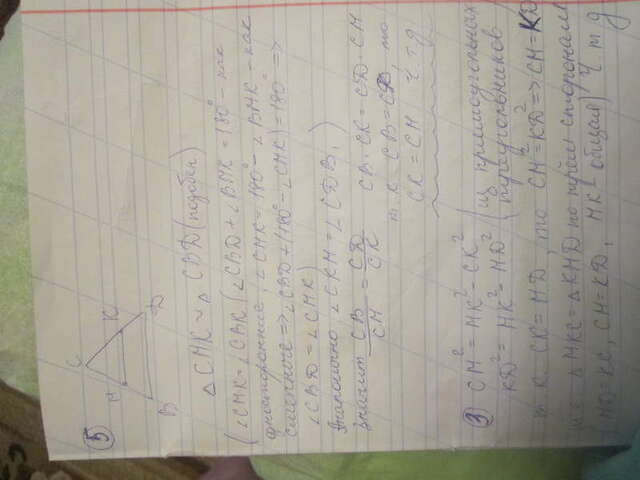 5
C
M K
B D
△CMK ~ △CBD (подобен)
(∠CMK = ∠CBK (∠CBD + ∠BMK = 180° - как
односторонние, ∠CMK = 180° - ∠BMK - как
смежные => ∠CBD + (180° - ∠CMK) = 180° =>
∠CBD = ∠CMK)
Аналогично ∠CKM = ∠CDB.)
Значит CB/CM = CD/CK CB · CK = CD · CM
т.к. CB = CD, то
CK = CM Ч.т.д
3 CM² = MK² - CK² (из прямоугольных
KD² = MK² - MD² треугольников
т.к. CK = MD, то CM² = KD² => CM = KD
△MKC = △KMD по трём сторонам
(MD = KC, CM = KD, MK - общая) Ч.т.д